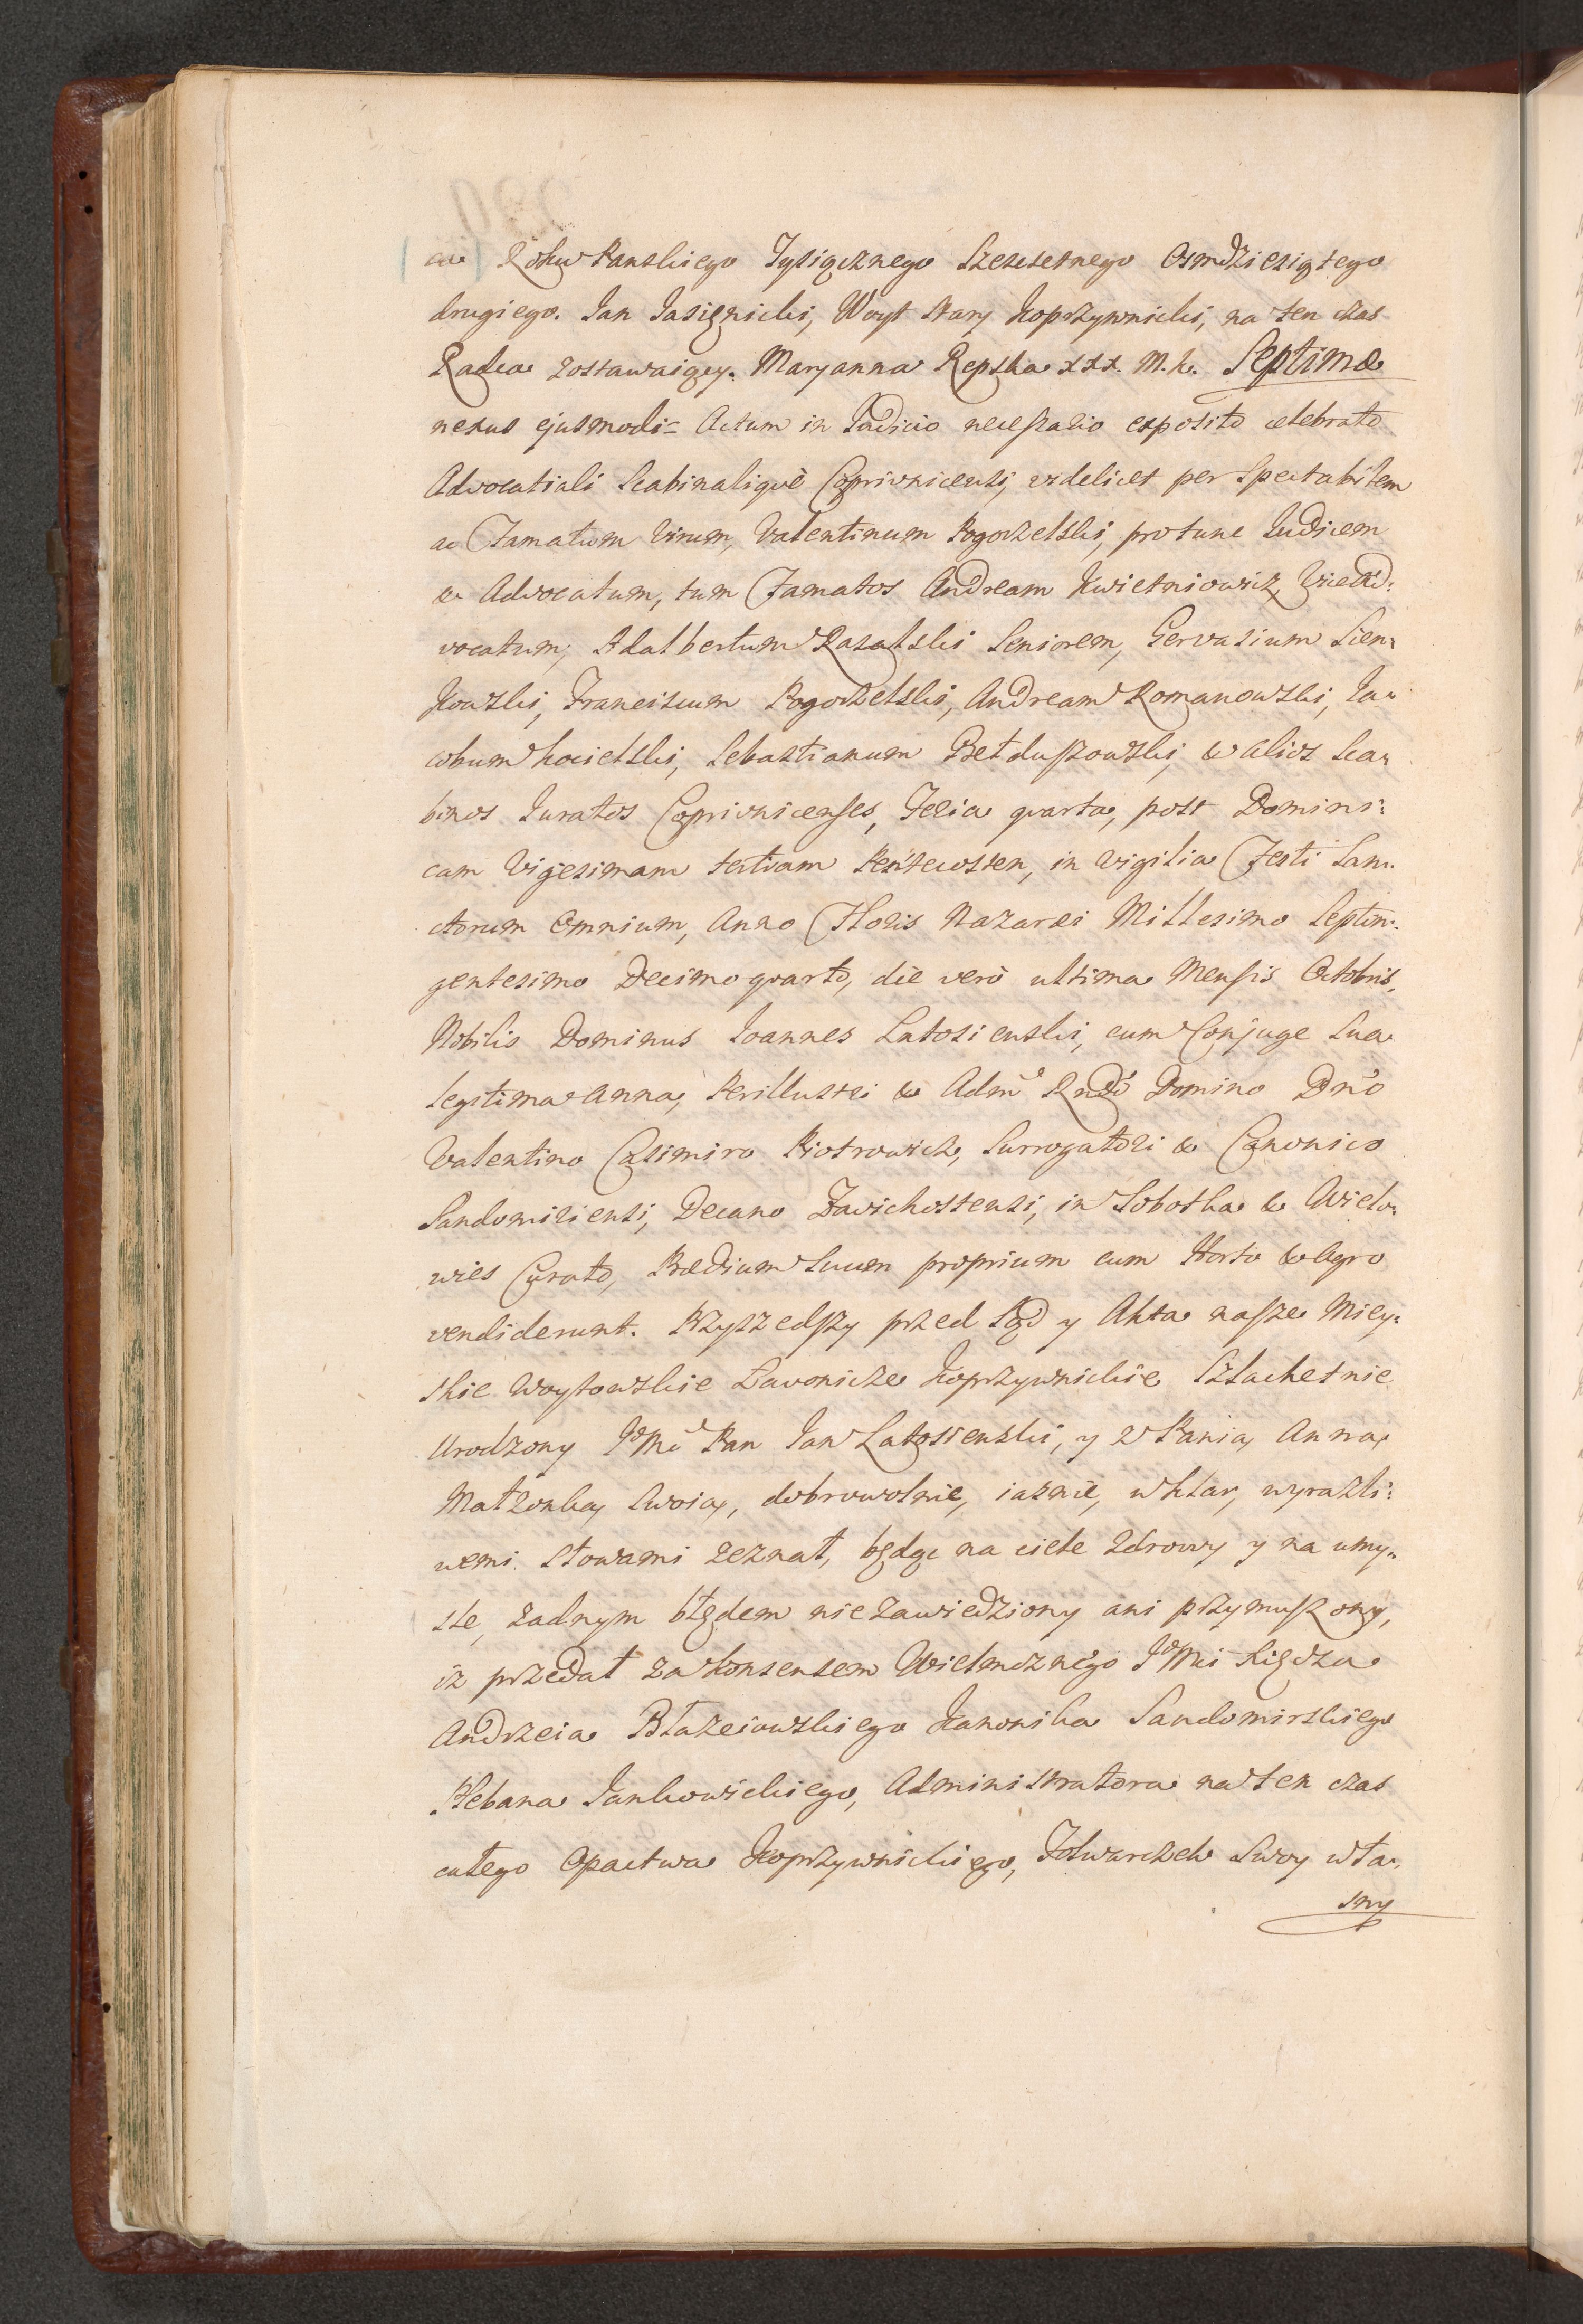 ca Roku Panskiego Tysiącznego Szescsetnego Osmdziesiątego
drugiego. Jan Jasięnicki, Woyt Stary Koprzywnicki, na ten czas
Radca zostawaiący. Maryanna Repska xxx. M. k. Septimæ
nexus ejusmodi= Actum in Judicio necessario exposito celebrato
Advocatiali Scabinaliquè Coprivnicensi, videlicet per Spectabilem
ac Famatum Virum, Valentinum Pogorzelski, protunc Judicem
& Advocatum, tum Famatos Andream Kwietniowicz, ViceAd:
vocatum, Adalbertum Rasalski Seniorem, Gervasium Sien:
kowski, Franciscum Pogorzelski, Andream Romanowski, Ja:
cobum Kocielski, Sebastianum Bełduszowski, & alios Sca:
binos Juratos Coprivnicenses, Feria quarta, post Domini:
cam Vigesimam tertiam Pentecosten, in Vigilia Festi San:
ctorum Omnium, Anno Floris Nazaræi Millesimo Septin:
gentesimo Decimoquarto, die verò ultima Mensis Octobris,
Nobilis Dominus Joannes Latosienski, cum Conjuge Sua
Legitima Anna, Perillustri & Adm Rndo Domino Dno
Valentino Casimiro Piotrowicz, Surrogatori & Canonico
Sandomiriensi, Decano Zawichostensi, in Sobotka & Wielo:
wies Curato, Prædium Suum proprium cum Horto & Agro
vendiderunt. Przyszedszy przed Sąd y Akta nasze Miey:
skie Woytowskie Ławnicze Koprzywnickie Szlachetnie
Urodzony JoMć Pan Jan Latosienski, y z Panią Anną
Małzonką Swoią, dobrowolnie, iasnie, w ktar, wyrazli:
wemi słowami zeznał, będąc na ciele zdrowy y na umy:
sle, zadnym błędem nie zawiedziony ani przymuszony,
iz przedał za Konsensem Wielmoznego JoMci Xiędza
Andrzeia Błazeiowskiego Kanonika Sandomirskiego
Plebana Jankowickiego, Administratora na ten czas
całego Opactwa Koprzywnickiego, Folwarczek Swoy wła:
sny